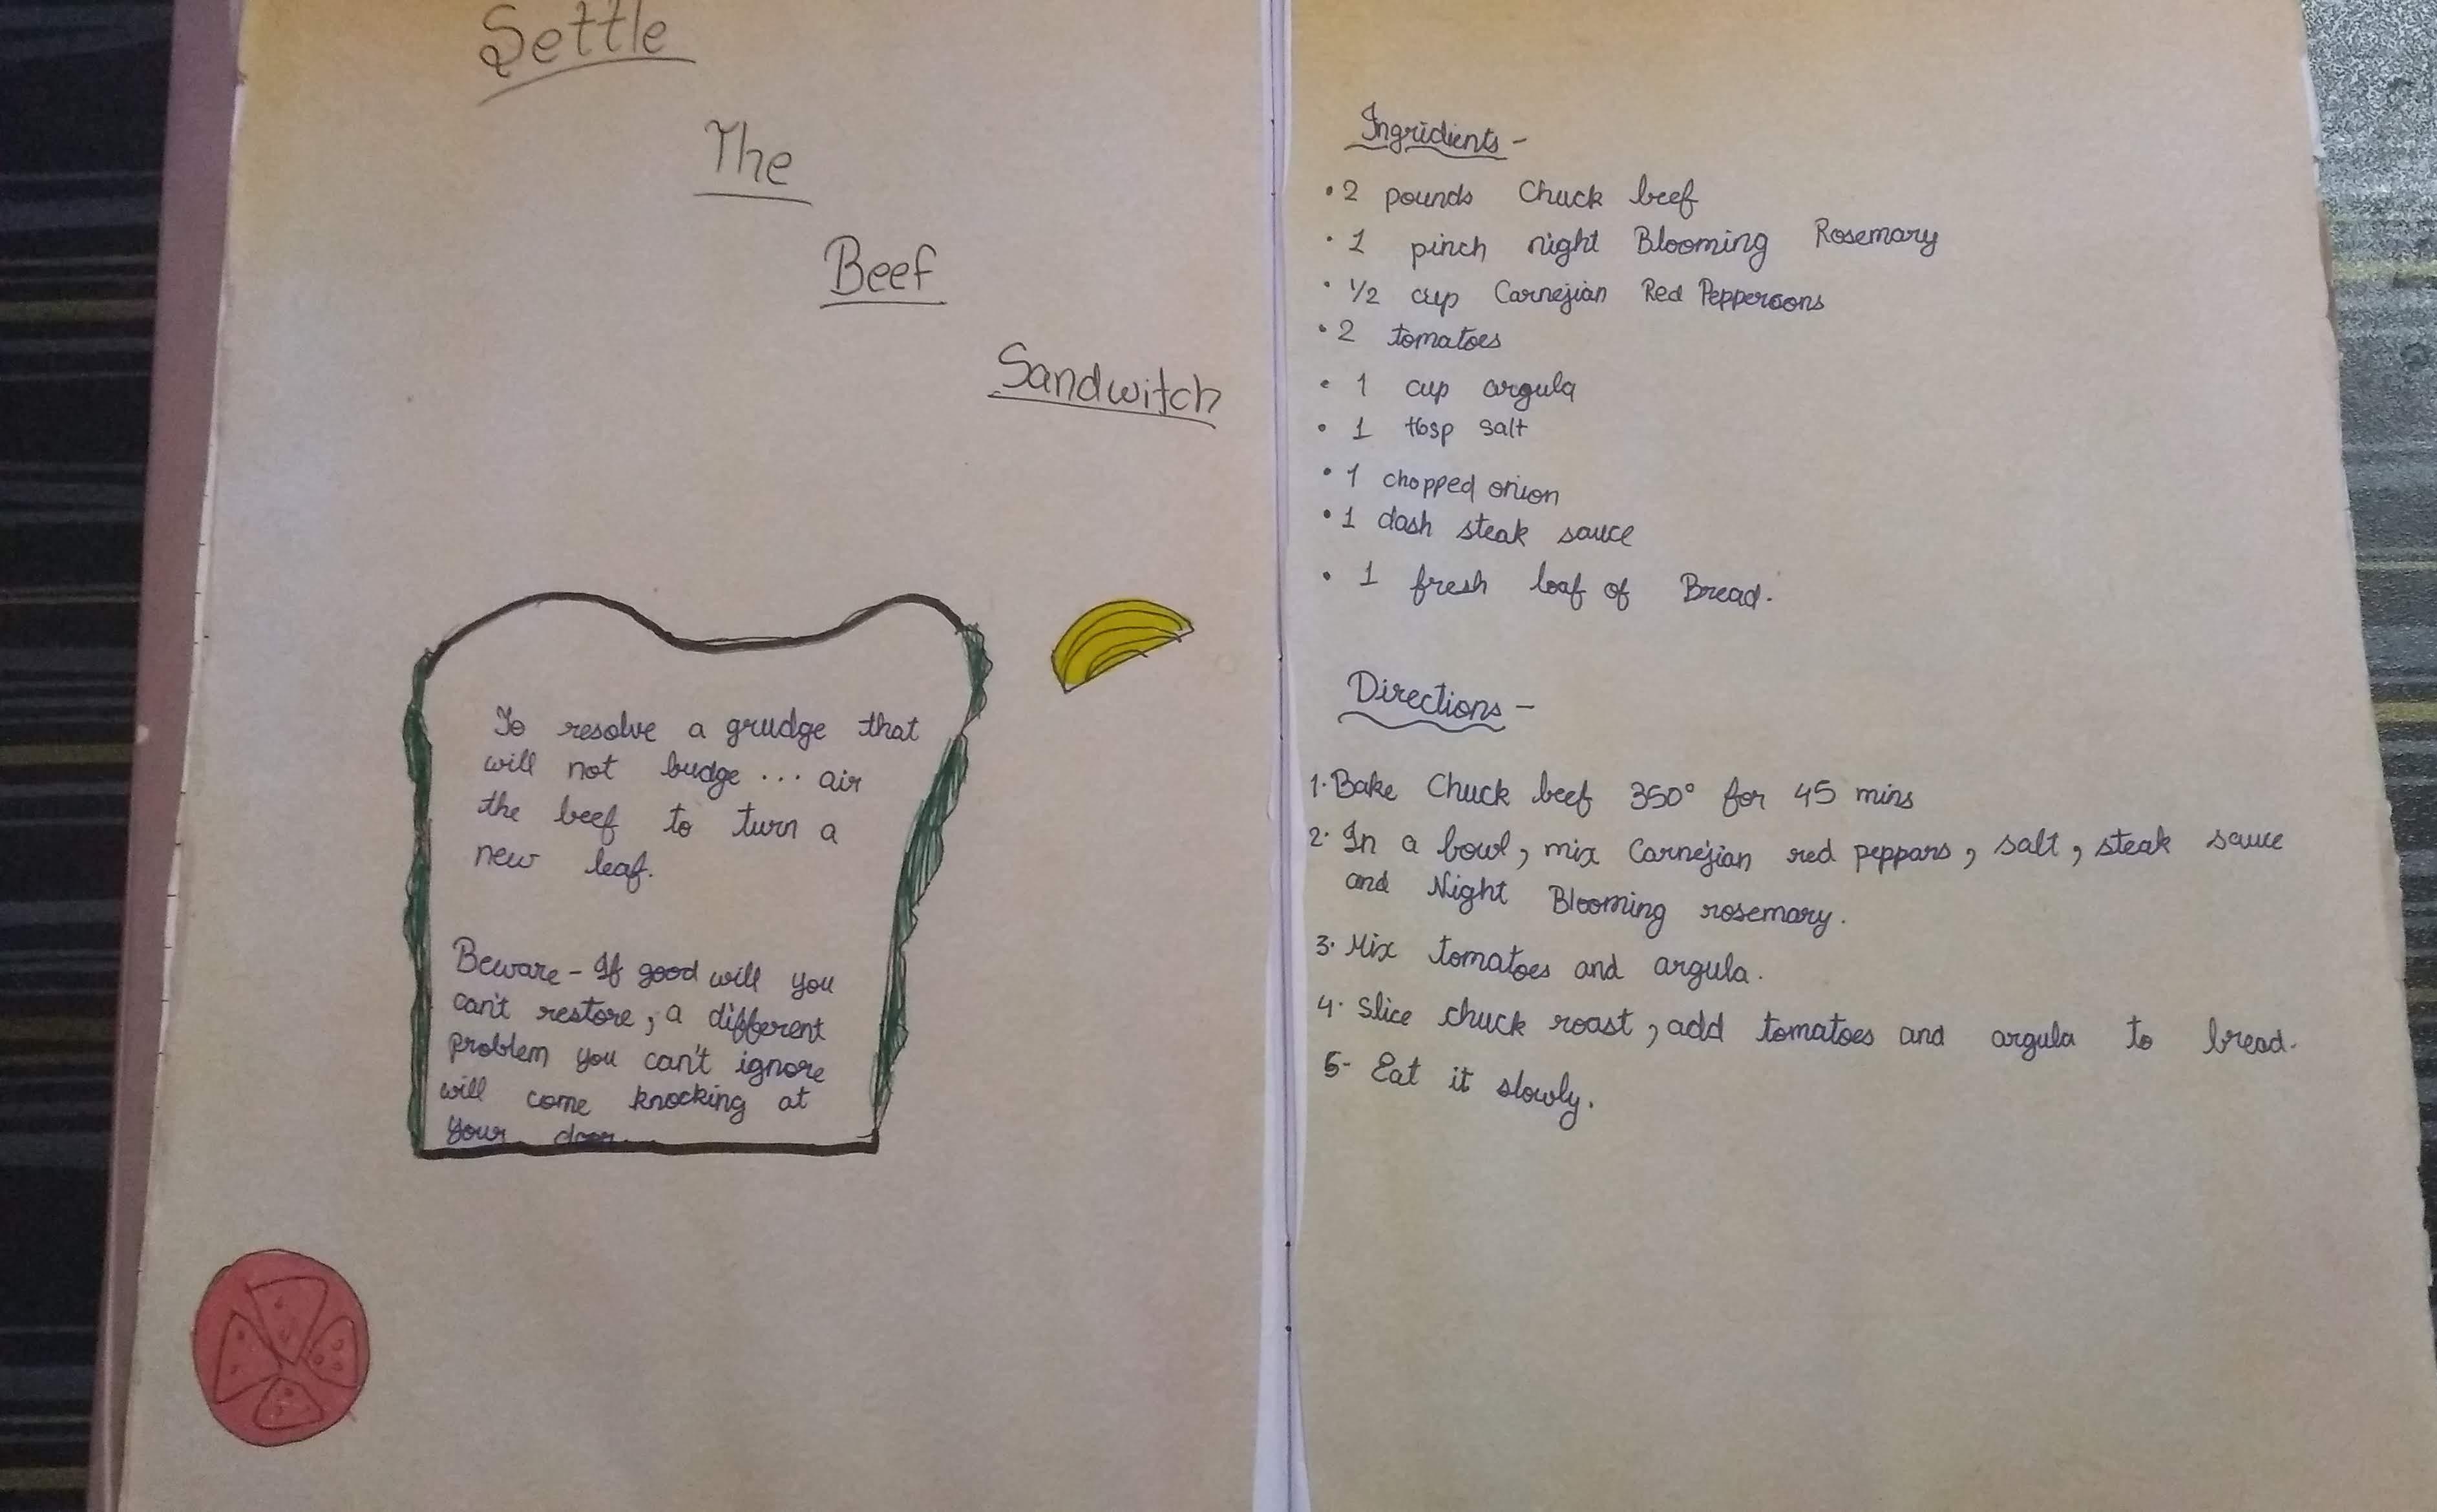 Settle
The
Beef
Sandwitch
To resolve a grudge that
will not budge ... air
the beef to turn a
new leaf.
Beware - If good will you
can't restore, a different
problem you can't ignore
will come knocking at
your door.
Ingridients -
• 2 pounds Chuck beef
• 1 pinch night Blooming Rosemary
• 1/2 cup Carnejian Red Pepperoons
• 2 tomatoes
• 1 cup argula
• 1 tbsp salt
• 1 chopped onion
• 1 dash steak sauce
• 1 fresh loaf of Bread.
Directions -
1. Bake Chuck beef 350° for 45 mins
2. In a bowl, mix Carnejian red peppars, salt, steak sauce
and Night Blooming rosemary.
3. Mix tomatoes and argula.
4. Slice chuck roast, add tomatoes and argula to bread.
5- Eat it slowly.